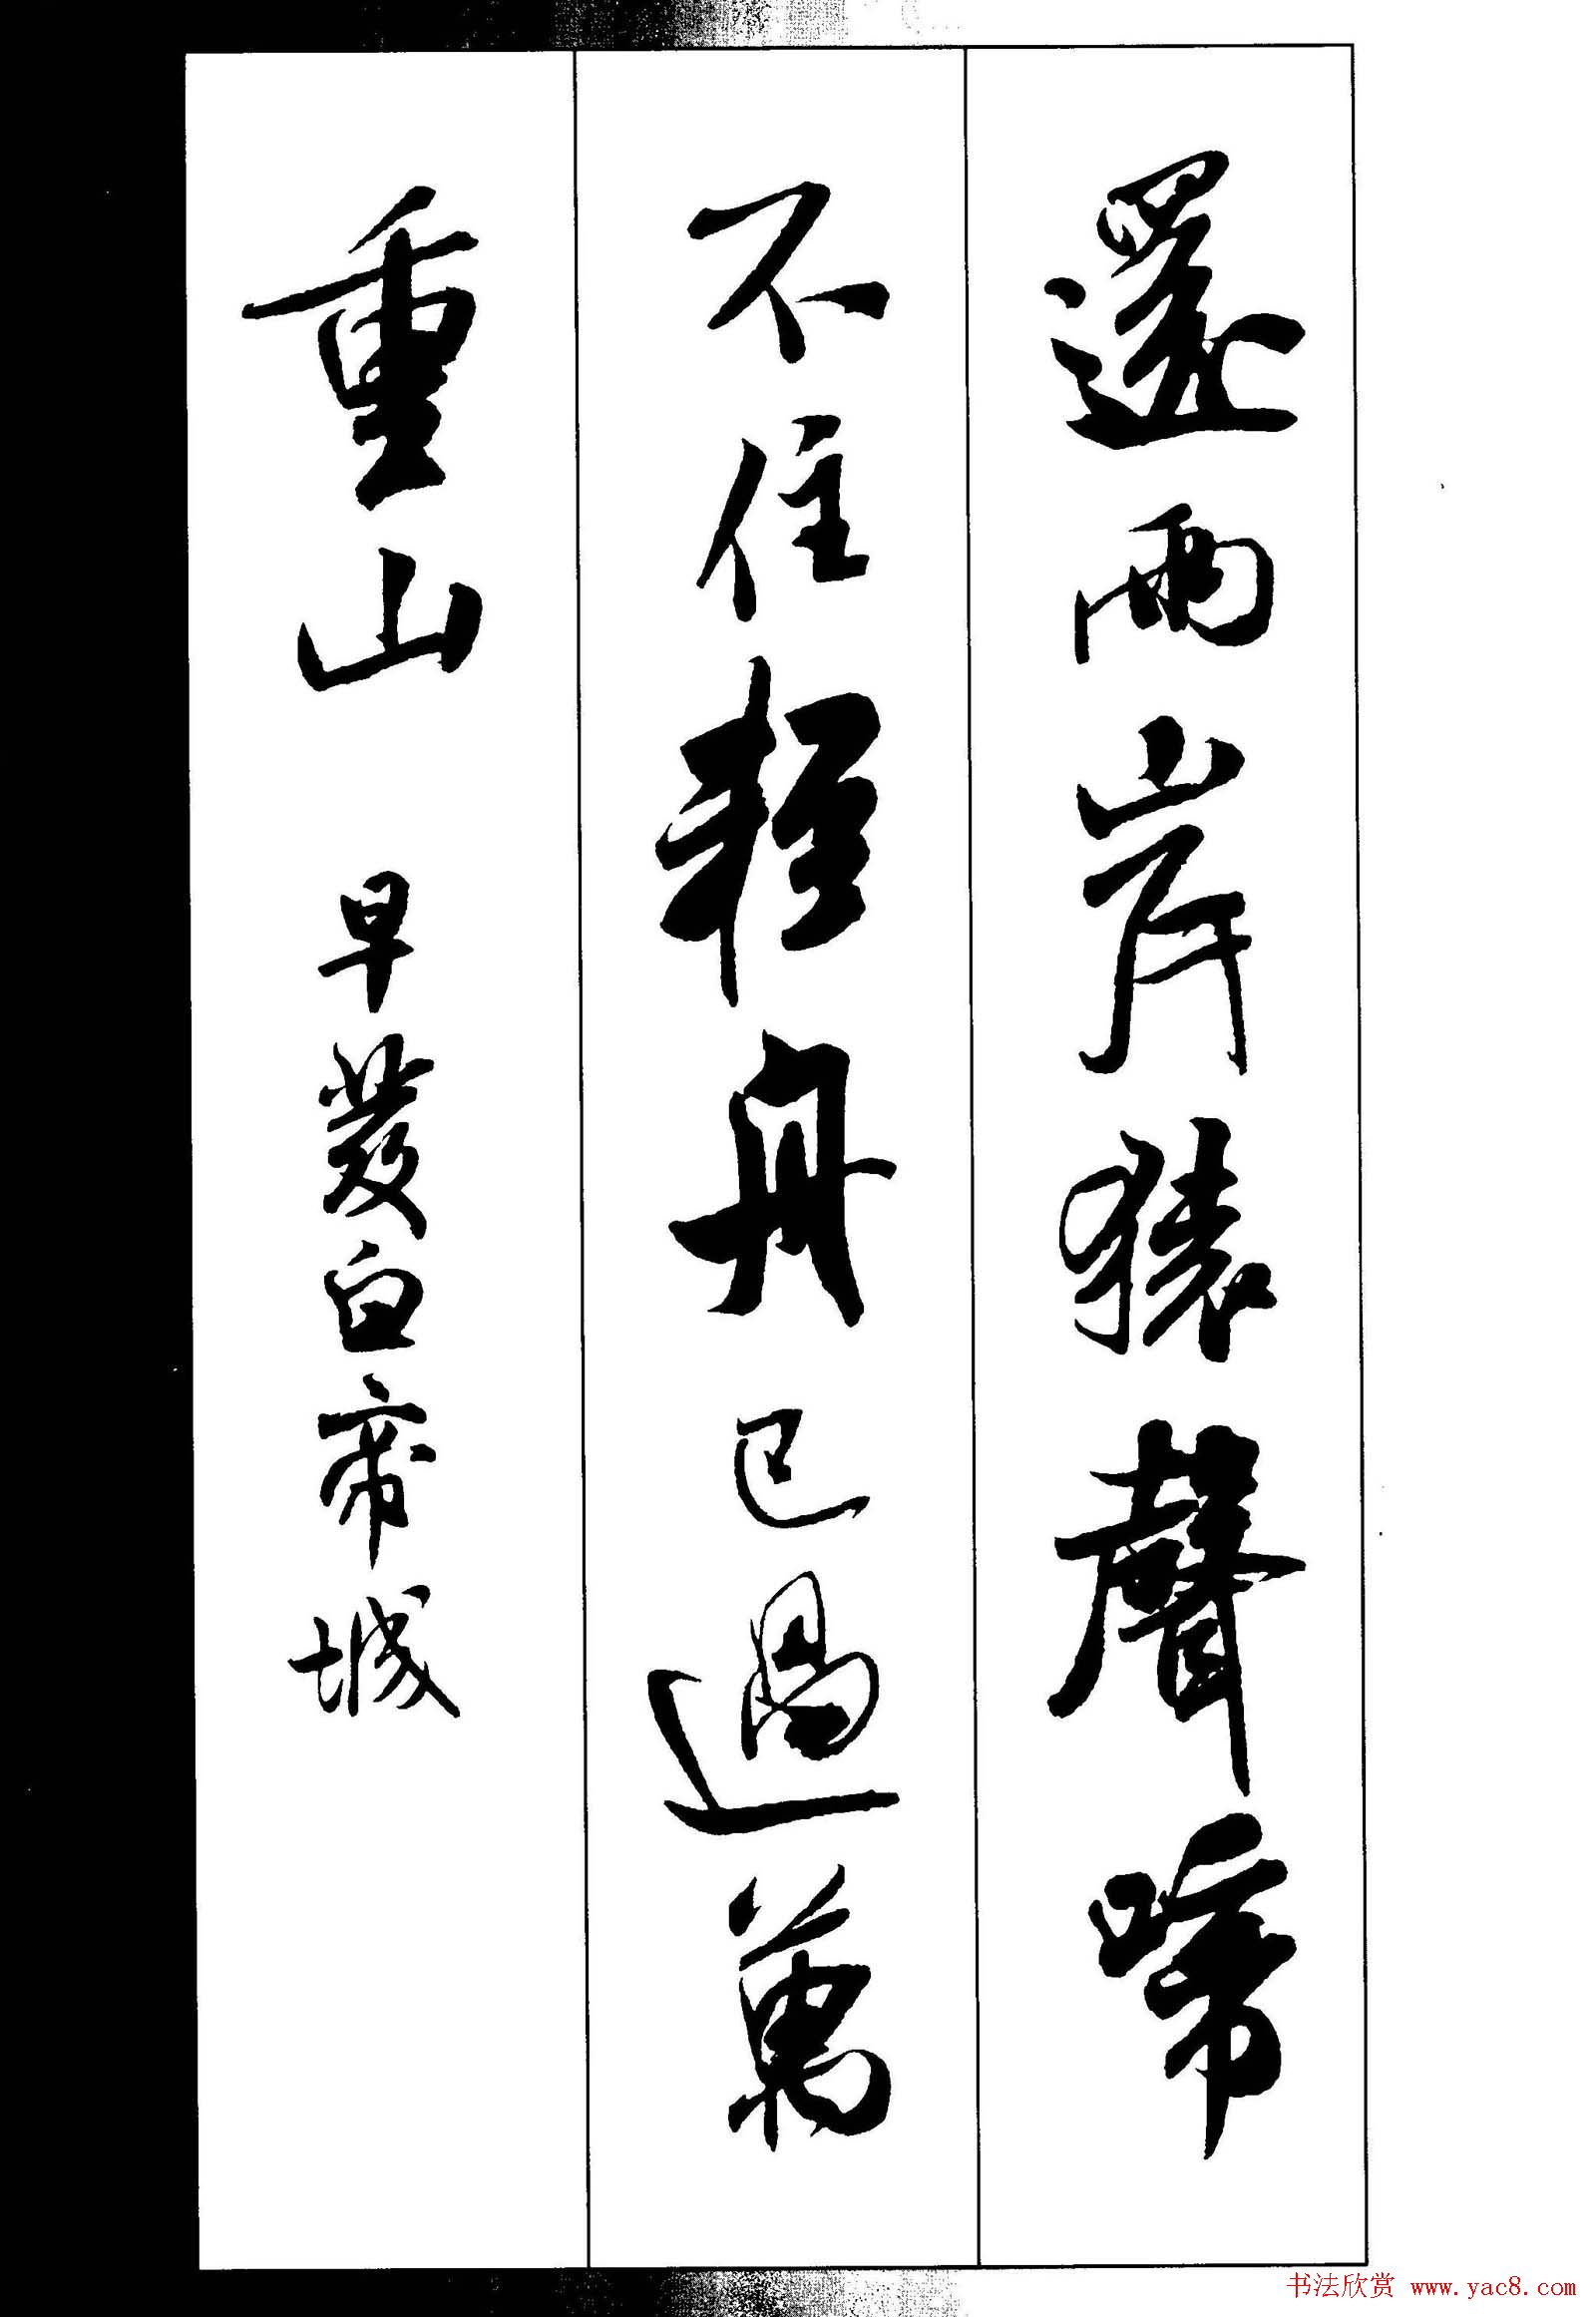 還兩岸猿聲啼
不住輕舟已過萬
重山 早發白帝城
书法欣赏 www.yac8.com